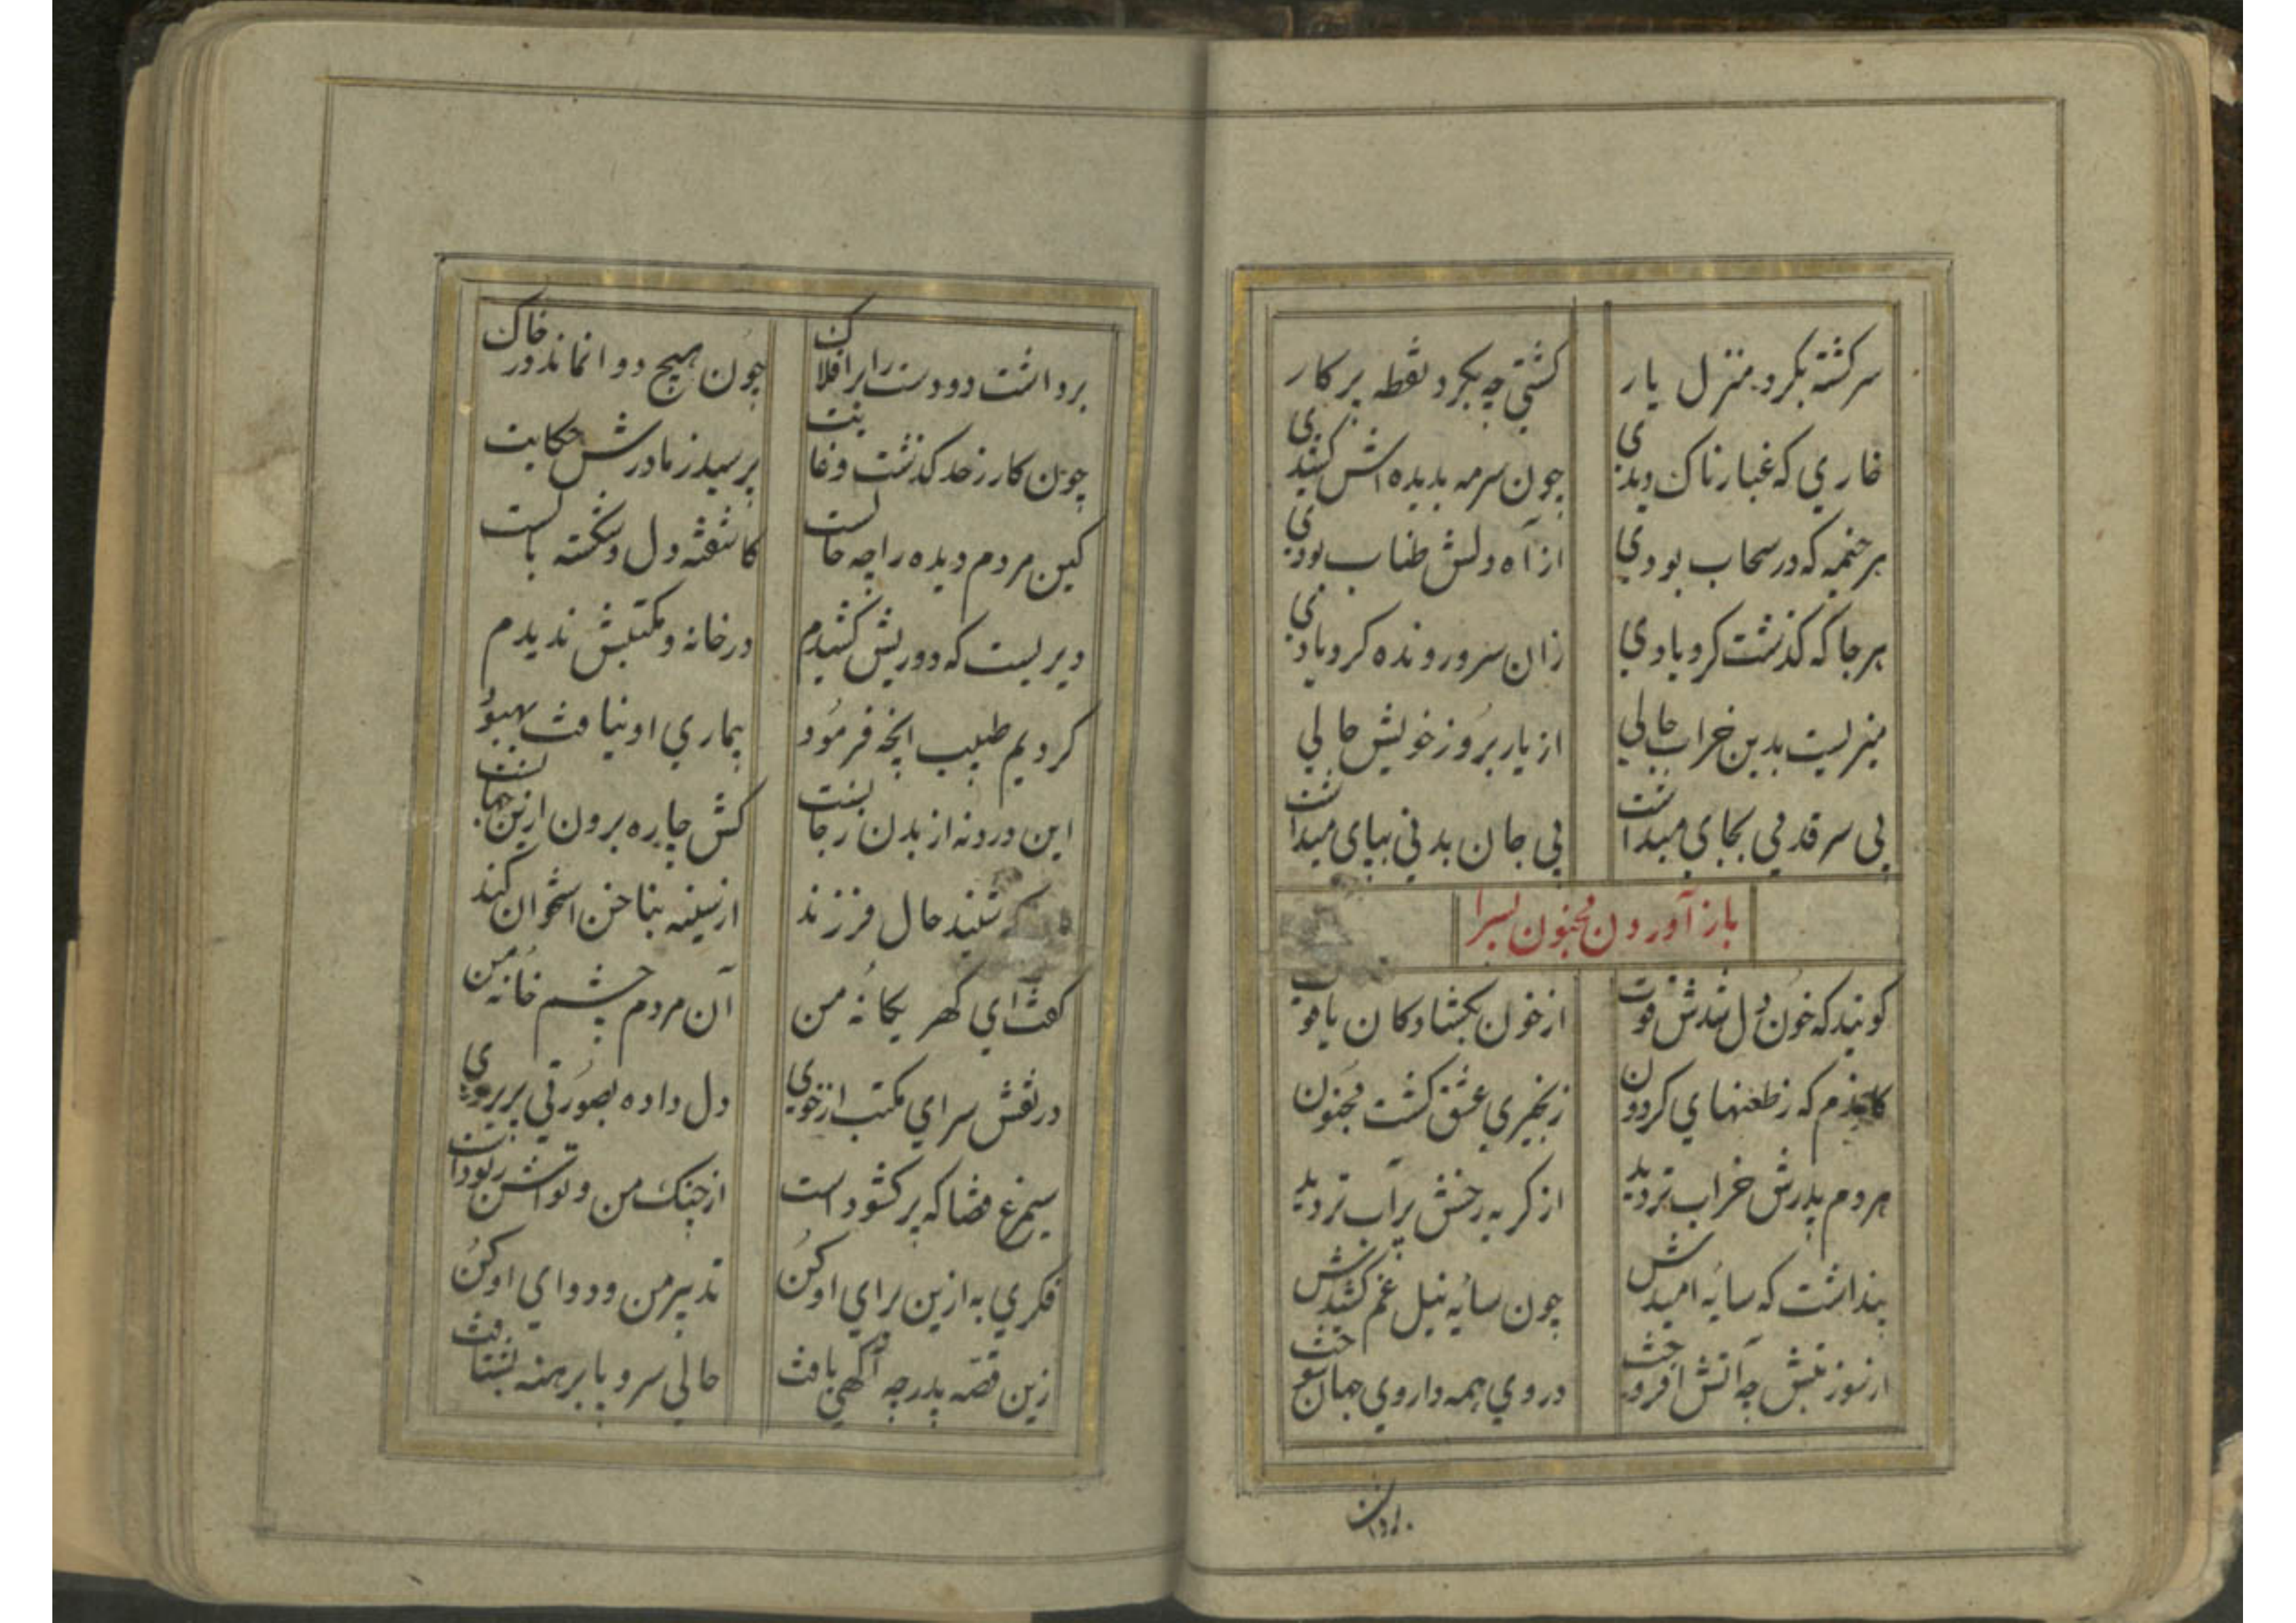 سرکشته بکرد منزل یار کشتی چه بکرد نقطه پرکار
خاري که غبارناک دیدي چون سرمه بدیده اش کشیدي
هر خیمه که در سحاب بودي از آه دلش طناب بودي
هر جا که گذشت کردبادي زان سرو رونده کرد یادي
میزیست بدین خراب حالي از یار بروز خویش حالي
بی سر قدمي بجاي میداشت بی جان بدني بپاي میداشت
باز آوردن مجنون بسرا
کویند که خون دل شدش قوت از خون بکشاد کان یاقوت
کاخر م که ز طعنهاي کردون زنجیري عشق کشت مجنون
هر دم پدرش خراب تر دید از کریه رخش پرآب تر دید
پنداشت که سایهٔ امیدش چون سایه بنیل غم کشیدش
از سوز تبش چه آتش افروخت دروي همه داروي جهان سوخت
برداشت
برداشت دو دست را بر افلاک چون هیچ دوا نماند در خاک
چون کار ز حد کذشت و غایت پرسید ز مادرش حکایت
کین مردم دیده را چه حالست کاشفته دل و شکسته بالست
دیریست که دوریش کشیدم در خانه و مکتبش ندیدم
کردیم طبیب انچه فرمود بیماري او نیافت بهبود
این درد نه از بدن ز جانست کش چاره برون ازین جهانست
شنید حال فرزند از سینه بناخن استخوان کند
کفت اي کهر یکانهٔ من آن مردم چشم خانهٔ من
در نقش سراي مکتب از خوي دل داده بصورتي پریروي
سیمرغ قضا که پر کشوداست از چنک من و تواش ربوداست
فکري به ازین براي او کن تدبیر من و دواي او کن
زین قصه پدر چه آکهي یافت حالي سر و پا برهنه بشتافت